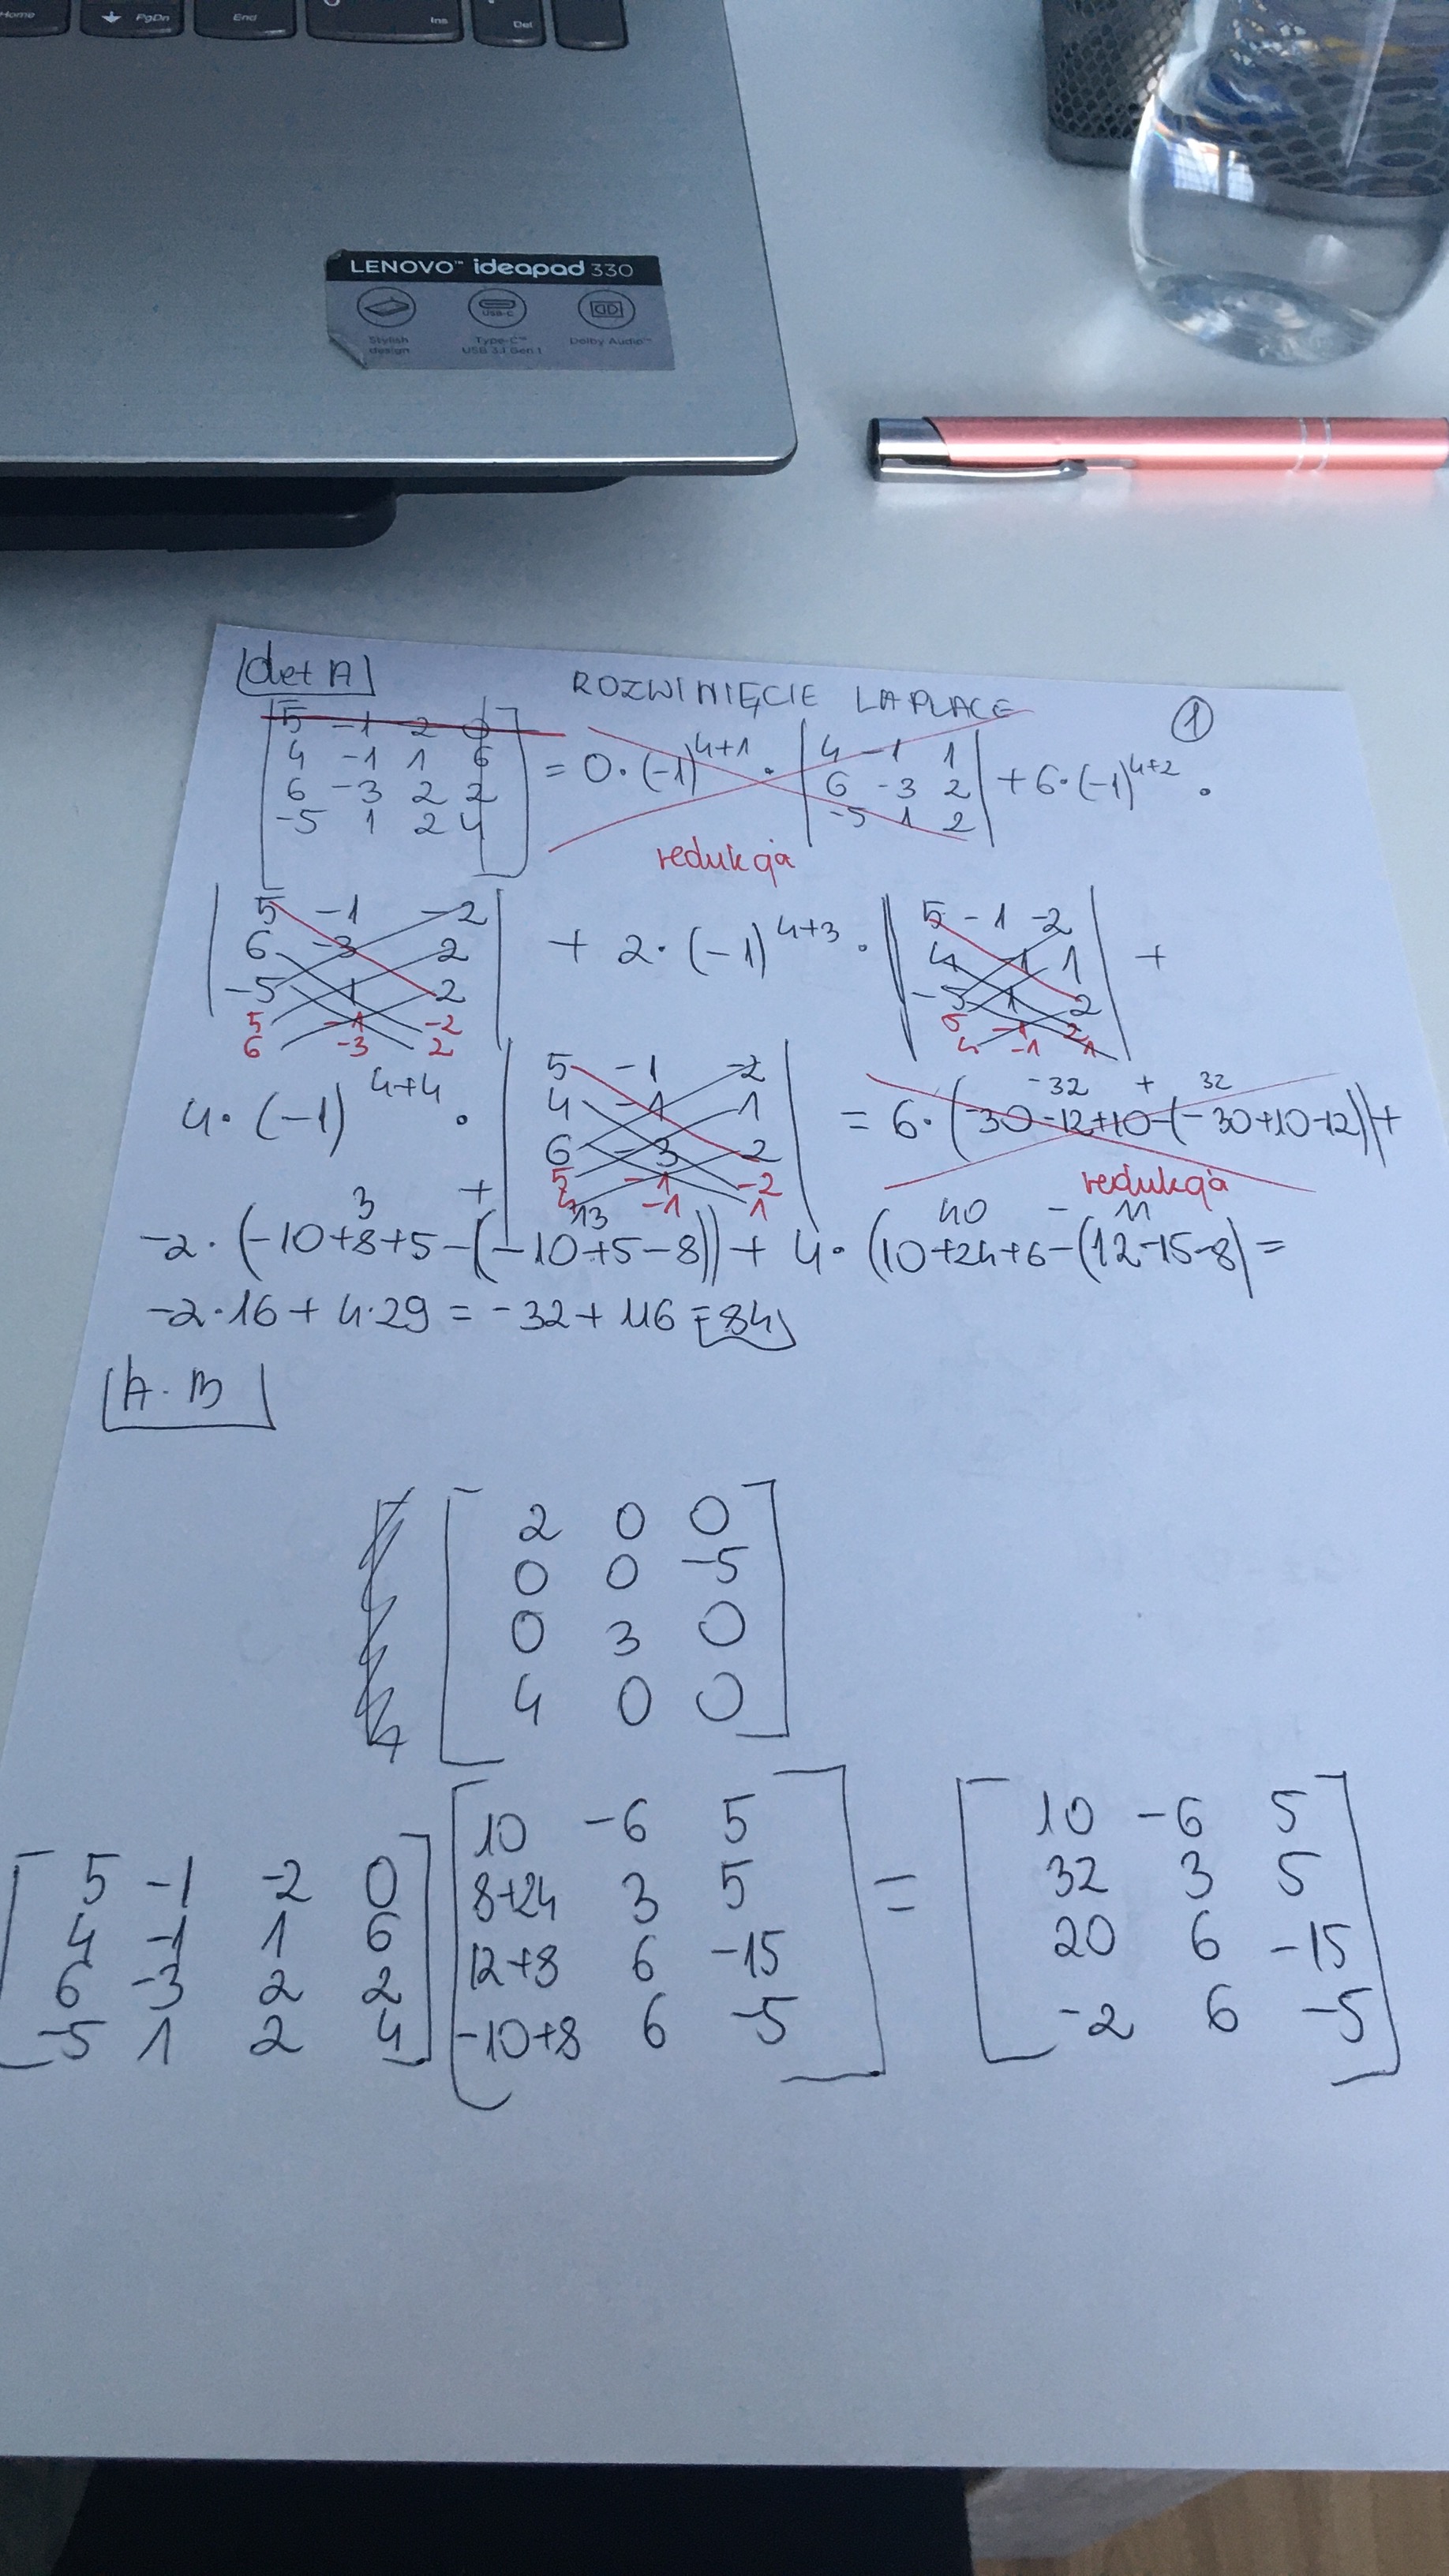 Home PgDn End Ins Del
LENOVO™ ideapad 330
USB-C
Stylish design
Type-C™ USB 3.1 Gen 1
Dolby Audio™
det A ROZWINIĘCIE LAPLACE 1
5 -1 2 0
4 -1 1 6
6 -3 2 2
-5 1 2 4
= 0·(-1)^4+1 ·
4 -1 1
6 -3 2
-5 1 2
+ 6·(-1)^4+2 ·
redukcja
5 -1 -2
6 -3 2
-5 1 2
5 -1 -2
6 -3 2
+ 2·(-1)^4+3 ·
5 -1 -2
4 -1 1
-5 1 2
5 -1 2
4 -1 1
+
4·(-1)^4+4 ·
5 -1 -2
4 -1 1
6 -3 2
5 -1 -2
4 -1 1
-32 + 32
= 6·(-30-12+10-(-30+10-12))+
redukcja
3 + 13 40 - 11
-2·(-10+8+5-(-10+5-8))+ 4·(10+24+6-(12-15-8) =
-2·16 + 4·29 = -32 + 116 = 84
A·B
2 0 0
0 0 -5
0 3 0
4 0 0
5 -1 -2 0
4 -1 1 6
6 -3 2 2
-5 1 2 4
10 -6 5
8+24 3 5
12+8 6 -15
-10+8 6 -5
=
10 -6 5
32 3 5
20 6 -15
-2 6 -5